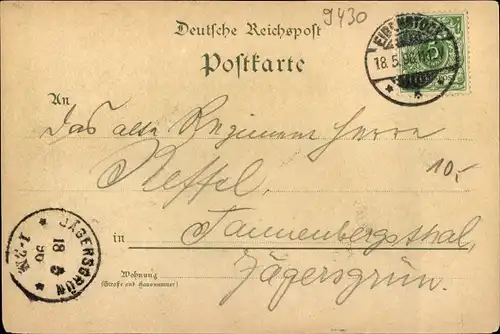 9430
Deutsche Reichspost
Postkarte
EIBENSTOCK
18.5.96
An
Das alte Regiment Herrn
10,-
Neffel,
in Tannenbergsthal,
Wohnung
(Straße und Hausnummer)
Jägersgrün.
JÄGERSGRÜN
18 5
96
1-2N